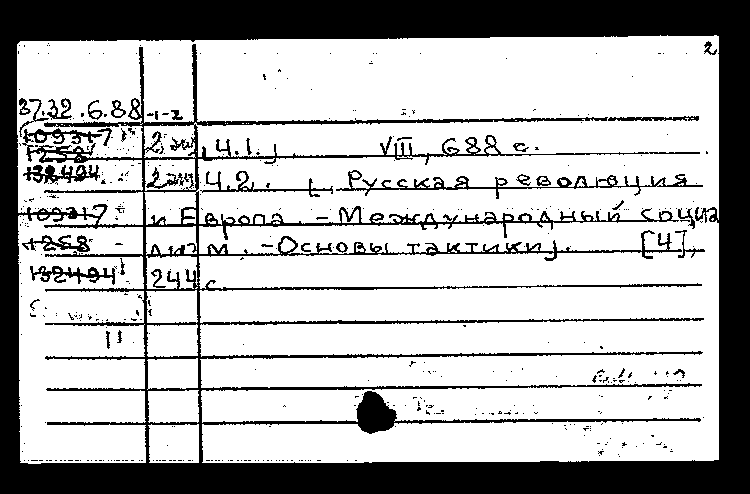 2
37.32.6.88-1-2
109317 2 экз Ч.1.] VIII, 688 с.
1258
132494 2 экз Ч.2. [Русская революция
109317 и Европа. - Международный социа
1258 - лизм. - Основы тактики]. [4],
132494 244 с.
11